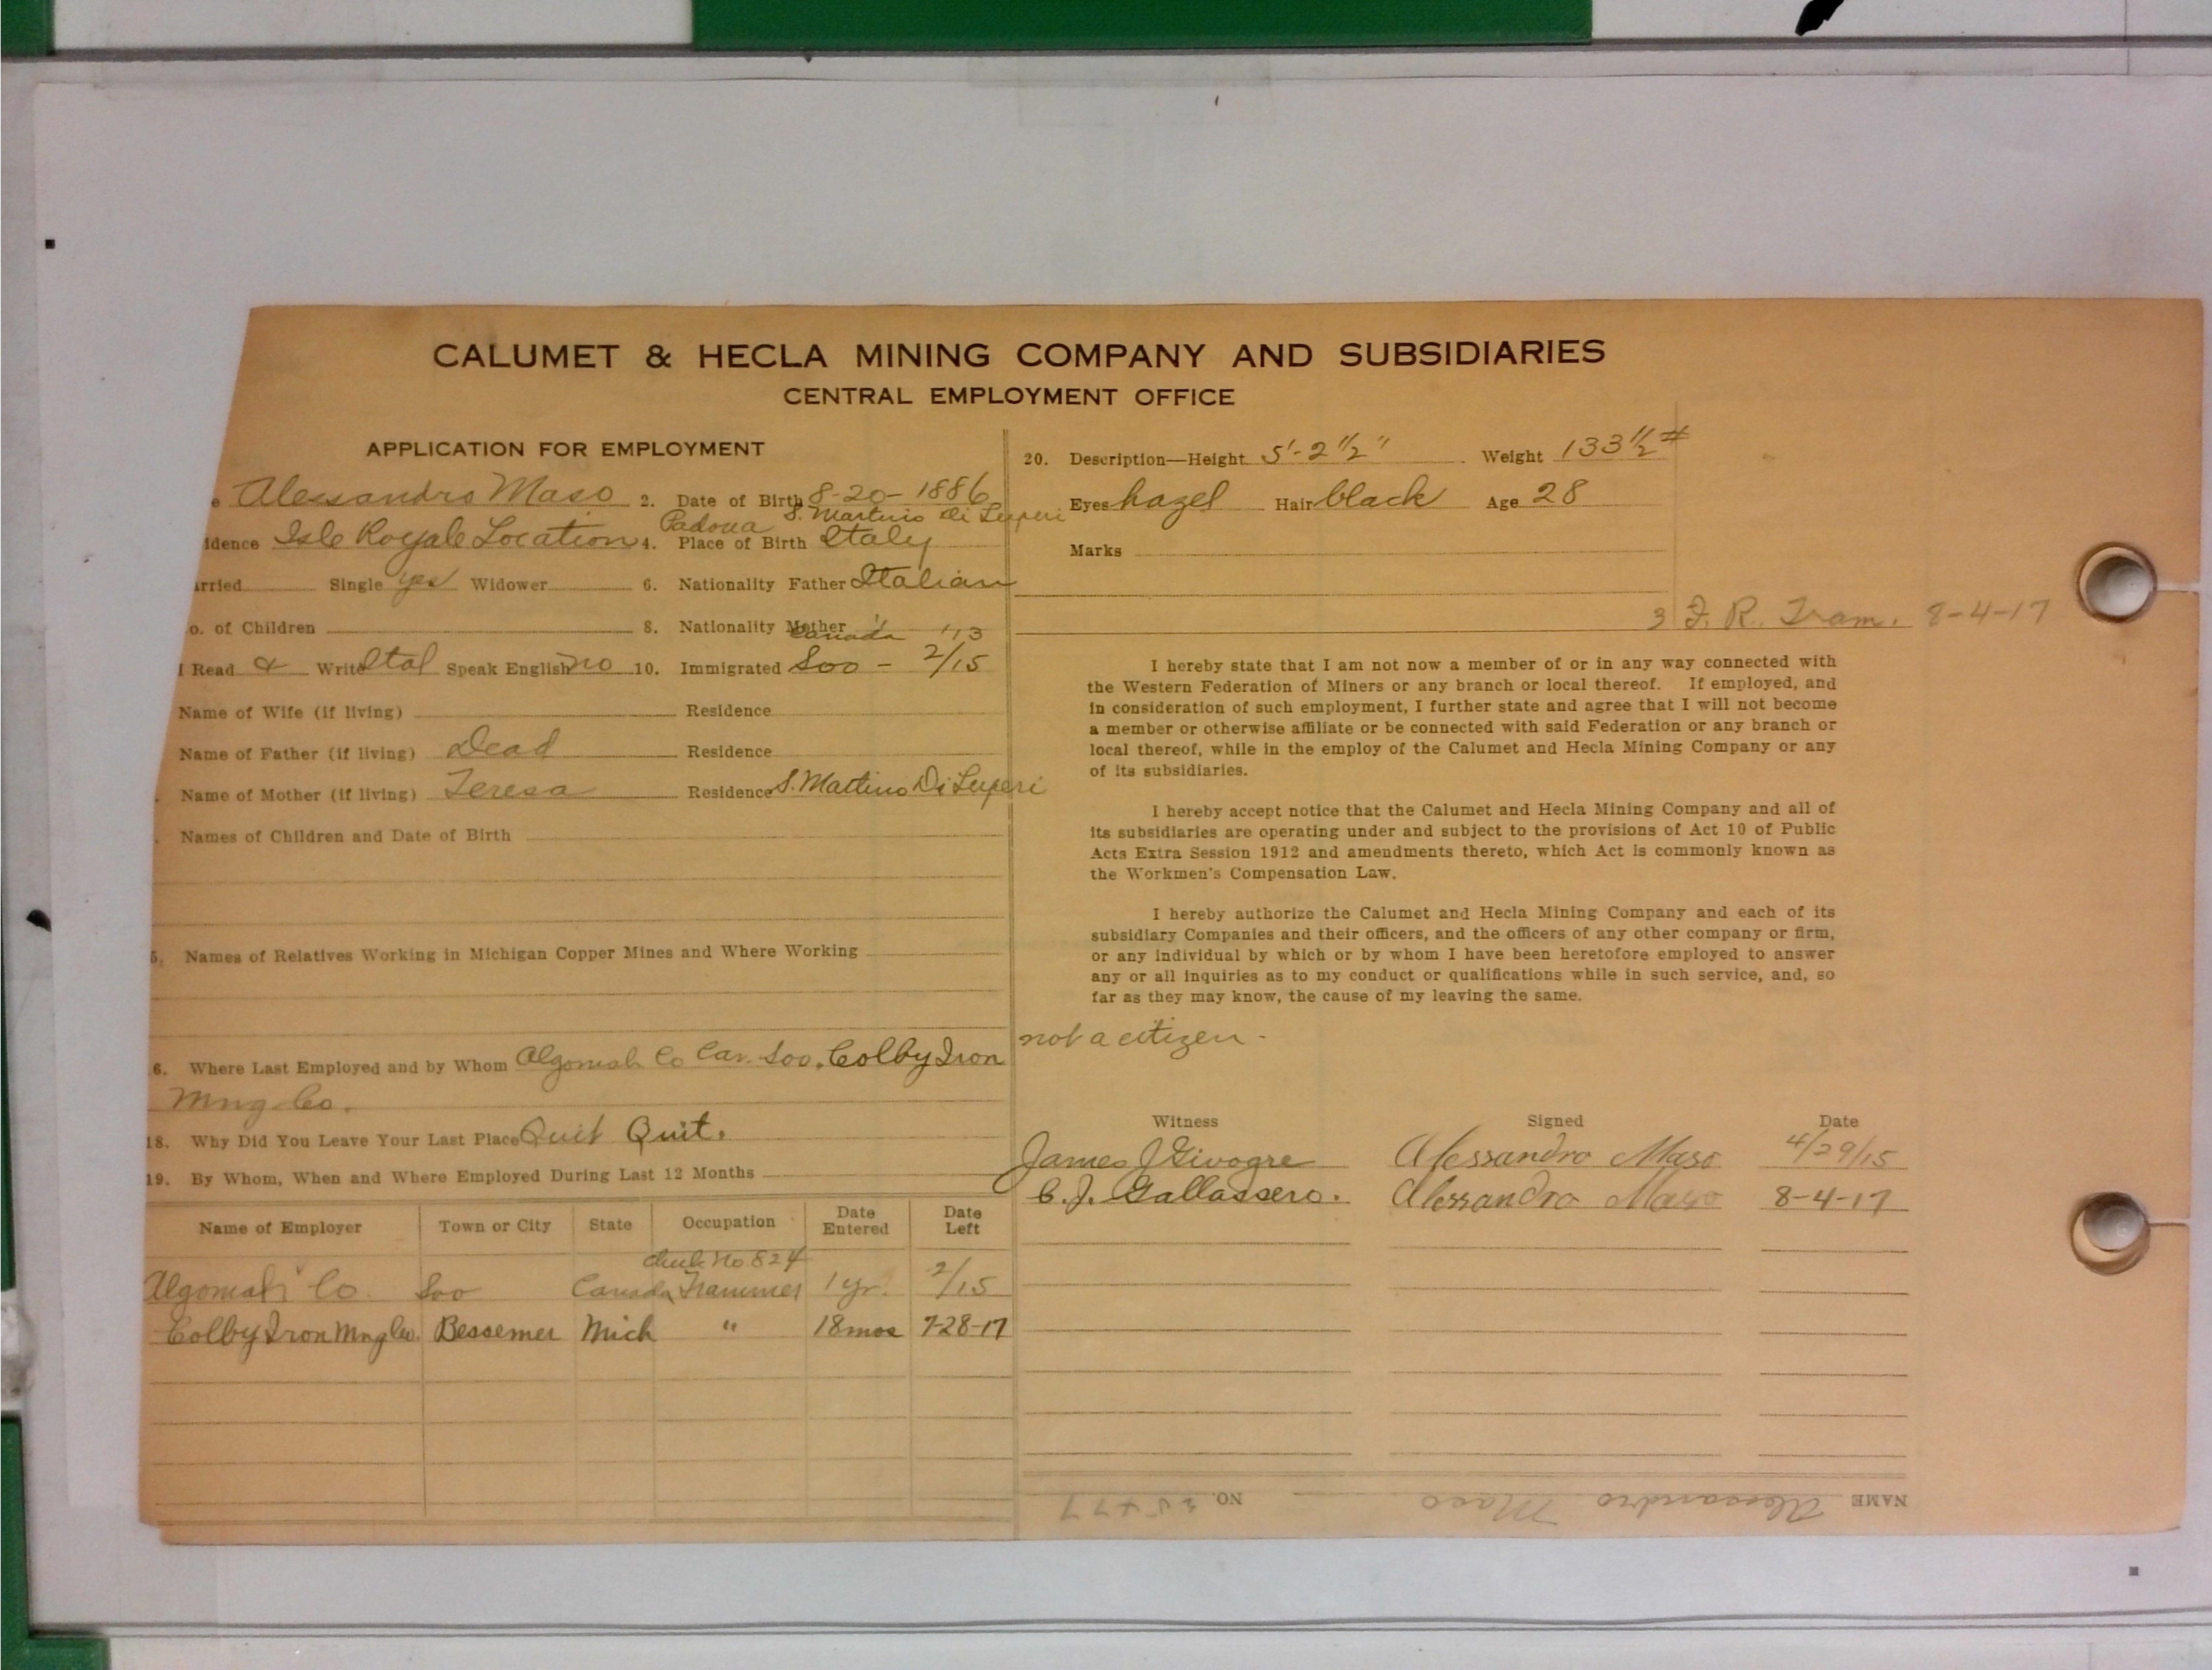 CALUMET & HECLA MINING COMPANY AND SUBSIDIARIES
CENTRAL EMPLOYMENT OFFICE
APPLICATION FOR EMPLOYMENT
e Alessandro Maso 2. Date of Birth 8-20-1886
Padova S. Martino Di Luperi
idence Isle Royale Location 4. Place of Birth Italy
rried Single yes Widower 6. Nationality Father Italian
o. of Children 8. Nationality Mother "
Canada 1/13
I Read & Write Ital Speak English no 10. Immigrated Soo - 2/15
Name of Wife (if living) Residence
Name of Father (if living) Dead Residence
Name of Mother (if living) Teresa Residence S. Martino Di Luperi
Names of Children and Date of Birth
5. Names of Relatives Working in Michigan Copper Mines and Where Working
6. Where Last Employed and by Whom Algomah Co Can. Soo. Colby Iron
Mng Co.
18. Why Did You Leave Your Last Place Quit Quit.
19. By Whom, When and Where Employed During Last 12 Months
Name of Employer Town or City State Occupation Date Entered Date Left
Check No. 824
Algomah Co. Soo Canada Trammer 1 yr. 2/15
Colby Iron Mng Co. Bessemer Mich " 18 mos 7-28-17
20. Description—Height 5'-2 1/2" Weight 133 1/2 #
Eyes hazel Hair black Age 28
Marks
3 F. R. Tram. 8-4-17
I hereby state that I am not now a member of or in any way connected with
the Western Federation of Miners or any branch or local thereof. If employed, and
in consideration of such employment, I further state and agree that I will not become
a member or otherwise affiliate or be connected with said Federation or any branch or
local thereof, while in the employ of the Calumet and Hecla Mining Company or any
of its subsidiaries.
I hereby accept notice that the Calumet and Hecla Mining Company and all of
its subsidiaries are operating under and subject to the provisions of Act 10 of Public
Acts Extra Session 1912 and amendments thereto, which Act is commonly known as
the Workmen's Compensation Law.
I hereby authorize the Calumet and Hecla Mining Company and each of its
subsidiary Companies and their officers, and the officers of any other company or firm,
or any individual by which or by whom I have been heretofore employed to answer
any or all inquiries as to my conduct or qualifications while in such service, and, so
far as they may know, the cause of my leaving the same.
not a citizen -
Witness Signed Date
James J Givogre Alessandro Maso 4/29/15
C. J. Gallassero. Alessandro Maso 8-4-17
NAME Alessandro Maso NO.